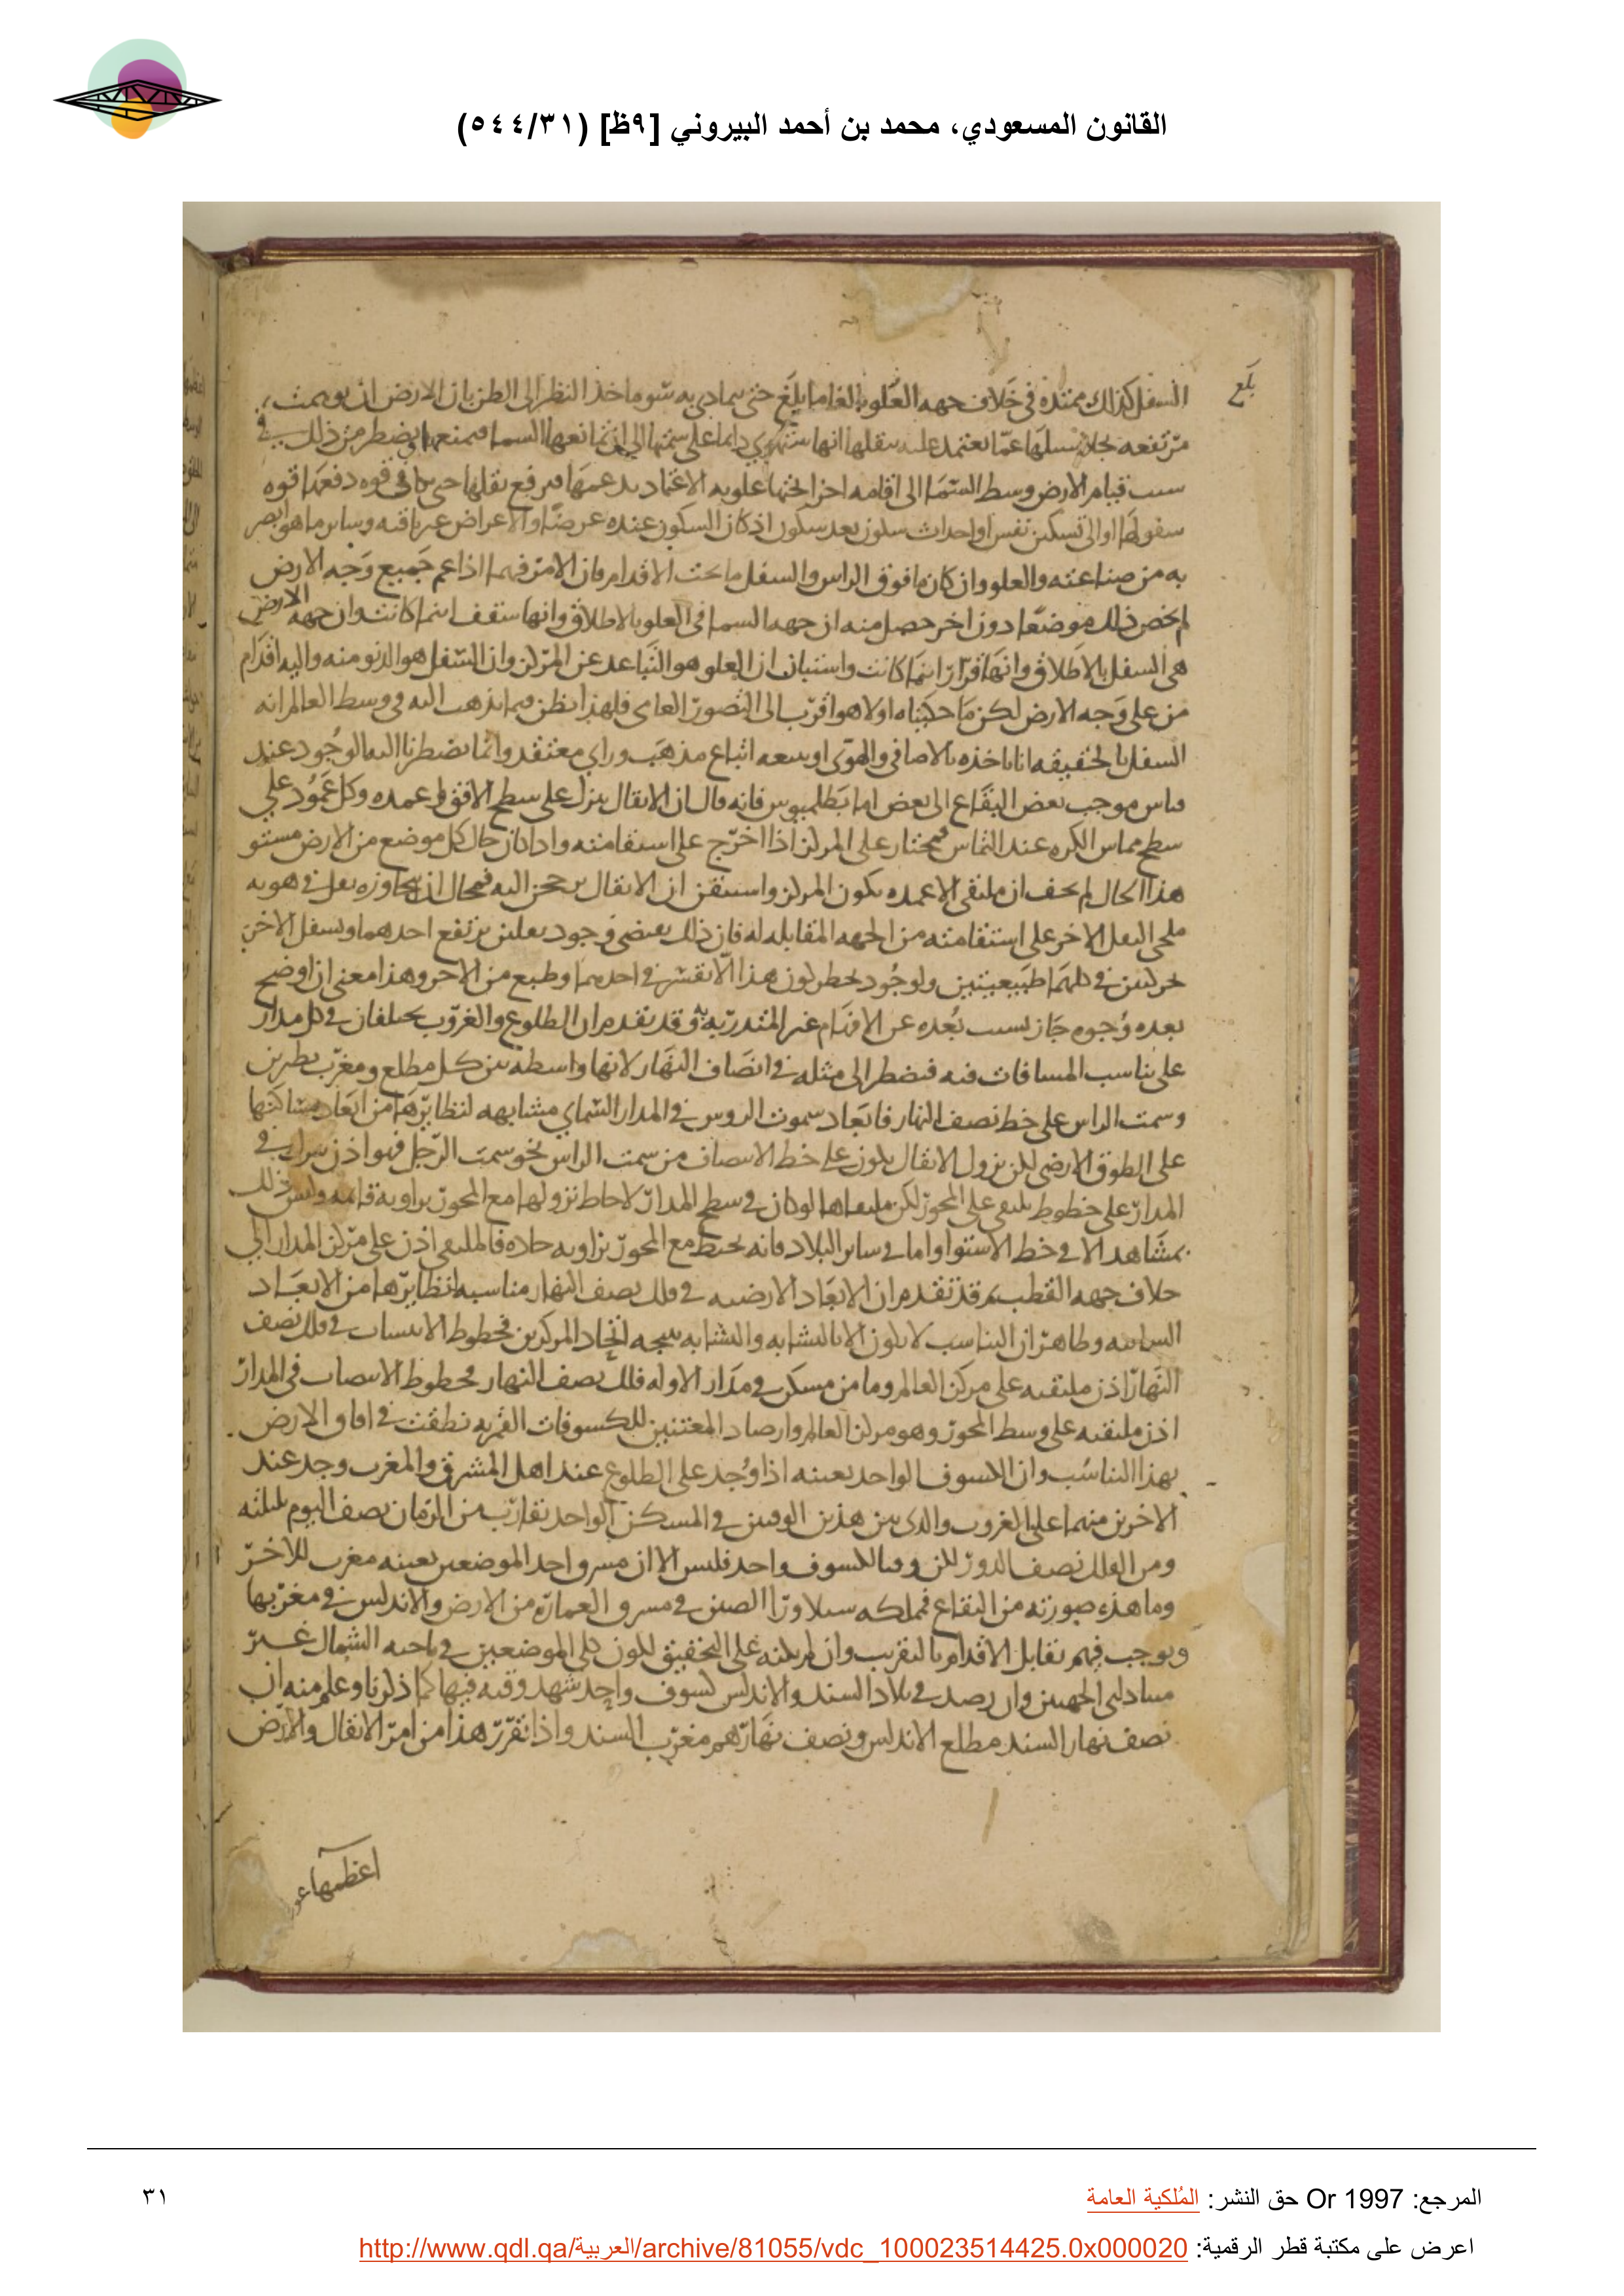 القانون المسعودي، محمد بن أحمد البيروني [٩ظ] (٥٤٤/٣١)
بلغ
السفل كذلك ممتده في خلاف جهه العلو بالغا ما بلغ حتى يتمادى به شوما خذ النظر الى الظن بان الارض ان توهمت
مرتفعه عما يعتمد عليه بثقلها انها ستهوي دايما على سمتها الى ان تمانعها السما فتمنعها فيضطر من ذلك في
سبب قيام الارض وسط السما الى اقامه يرفع ثقلها حتى في قوه دفعها قوه
سقوطها او الى تسكين نفس او احداث سكون بعد سكون اذ كان السكون عنده عرضا والاعراض غير باقيه وساير ما هو ابصر
به من صناعته والعلو وان كان ما فوق الراس والسفل ما تحت الاقدام فان الامر فيهما اذا عم جميع وجه الارض
لم يخص ذلك موضعا دون اخر حصل منه ان جهه السما في العلو بالاطلاق وانها سقف اينما كانت وان جهه الارض
هي السفل بالاطلاق وانها قرار اينما كانت واستبان ان العلو هو التباعد عن المركز وان السفل هو الدنو منه واليه اقدام
من على وجه الارض لكن ما حكيناه اولا هو اقرب الى التصور العامي فلهذا يظن فيما نذهب اليه في وسط العالم انه
السفل بالحقيقه انا ناخذه بالاصافي والهوى او يتبعه اتباع مذهب وراي معتقد وانما يضطرنا اليه الوجود عند
قياس موجب بعض البقاع الى بعض اما بطلميوس فانه قال ان الاثقال ينزل على سطح الافق في اعمده وكل عمود على
سطح مماس الكره عند التماس فمجتاز على المركز اذا اخرج على استقامته واذا كان حال كل موضع من الارض مستو
هذا الحال لم يخف ان ملتقى الاعمده يكون المركز واستيقن ان الاثقال اليه فمحال ان يتجاوزه ثقل في هويه
الثقل الاخر على استقامته من الجهه المقابله له فان ذلك يقتضي وجود ثقلين يرتفع احدهما ويسفل الاخر
حركتين في كلتيهما طبيعيتين ولو جود يخطر لون هذا في احديهما وطبع من الاخر وهذا معنى ان اوضح
بعده وجوه جاز بسبب بعده عن الافهام غير المتدربه وقد تقدم ان الطلوع والغروب يختلفان في كل مدار
على تناسب المسافات فيه فيضطر الى مثله في انصاف النهار لانها واسطه بين كل مطلع ومغرب بطرين
وسمت الراس على خط نصف النهار فابعاد سموت الروس في المدار السماي مشابهه لنظايرها من ابعاد مساكنها
على الطوق الارضي لكن نزول الاثقال يكون على خط الانتصاب من سمت الراس نحو سمت الرجل فهو اذن نزل في
المدار على خطوط يلتقى على المحور لكن ملتقاها لو كان في وسط المدار لاحاط نزولها مع المحور بزاويه قايمه وليس ذلك
بمشاهد الا في خط الاستوا واما في ساير البلاد فانه يحيط مع المحور بزاويه حاده فالملتقى اذن على مركز المدار الى
خلاف جهه القطب ثم قد تقدم ان الابعاد الارضيه في فلك نصف النهار مناسبه لنظايرها من الابعاد
السماييه وظاهر ان التناسب لا يكون الا بالتشابه والتشابه نتيجه اتحاد المركزين فخطوط الانتصاب في فلك نصف
النهار اذن ملتقيه على مركز العالم وما من مسكن في مدار الا وله فلك نصف النهار فخطوط الانتصاب في المدار
اذن ملتقيه على وسط المحور وهو مركز العالم وارصاد المعتنين للكسوفات القمريه نطقت في افاق الارض
بهذا التناسب وان الكسوف الواحد بعينه اذا وجد على الطلوع عند اهل المشرق والمغرب وجد عند
الاخرين منهما على الغروب والذي بين هذين الوقتين في المسكن الواحد تقارب من الزمان نصف اليوم بليلته
ومن الفلك نصف الدور لكن وقت الكسوف واحد فليس الا ان مشرق احد الموضعين بعينه مغرب للاخر
وما هذه صورته من البقاع فمملكه سيلا ورا الصين في مشرق العماره من الارض والاندلس في مغربها
ويوجب فيهم تقابل الاقدام بالتقريب وان لم يكنه على التحقيق لكون كلى الموضعين في ناحيه الشمال غير
متبادلتي الجهتين وان رصد في بلاد السند والاندلس كسوف واحد شهد وقته فيها كما ذكرنا وعلم منه ان
نصف نهار السند مطلع الاندلس ونصف نهارهم مغرب السند واذا تقرر هذا من امر الاثقال والارض
اعظمها
المرجع: Or 1997 حق النشر: المُلكية العامة
٣١
اعرض على مكتبة قطر الرقمية: http://www.qdl.qa/العربية/archive/81055/vdc_100023514425.0x000020